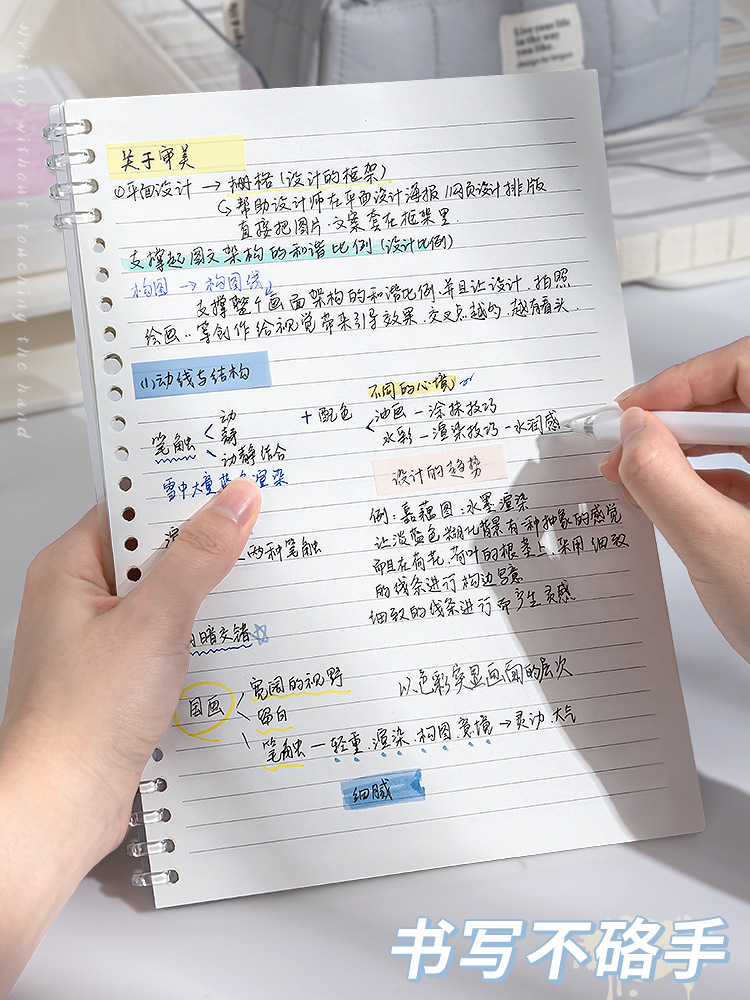 Live your life
in the way
you like.
design by bagse
Writing without touching the hand
关于审美
①平面设计 → 栅格(设计的框架)
↳ 帮助设计师在平面设计海报 网页设计排版
直接把图片、文案套在框架里
支撑起图文架构的和谐比例(设计比例)
构图 → 构图线
支撑整个画面架构的和谐比例.并且让设计.拍照
绘画..等创作给视觉带来引导效果.交叉点越多.越有看头.
(1)动线与结构
笔触 < 动
静
动静结合
雪中大量蓝色渲染
两种笔触
暗交错
+ 配色
不同的心境
油画 — 涂抹技巧
水彩 — 渲染技巧 — 水润感
设计的趋势
例:嘉藕图:水墨渲染
让淡蓝色糊化背景有一种抽象的感觉
而且在荷花,荷叶的根茎上.采用细致
的线条进行构边
细致的线条进行而产生灵感
国画 < 宽阔的视野
留白
笔触 — 轻重.渲染.构图.意境 → 灵动.大气
以色彩突显画面的层次
细腻
书写不硌手